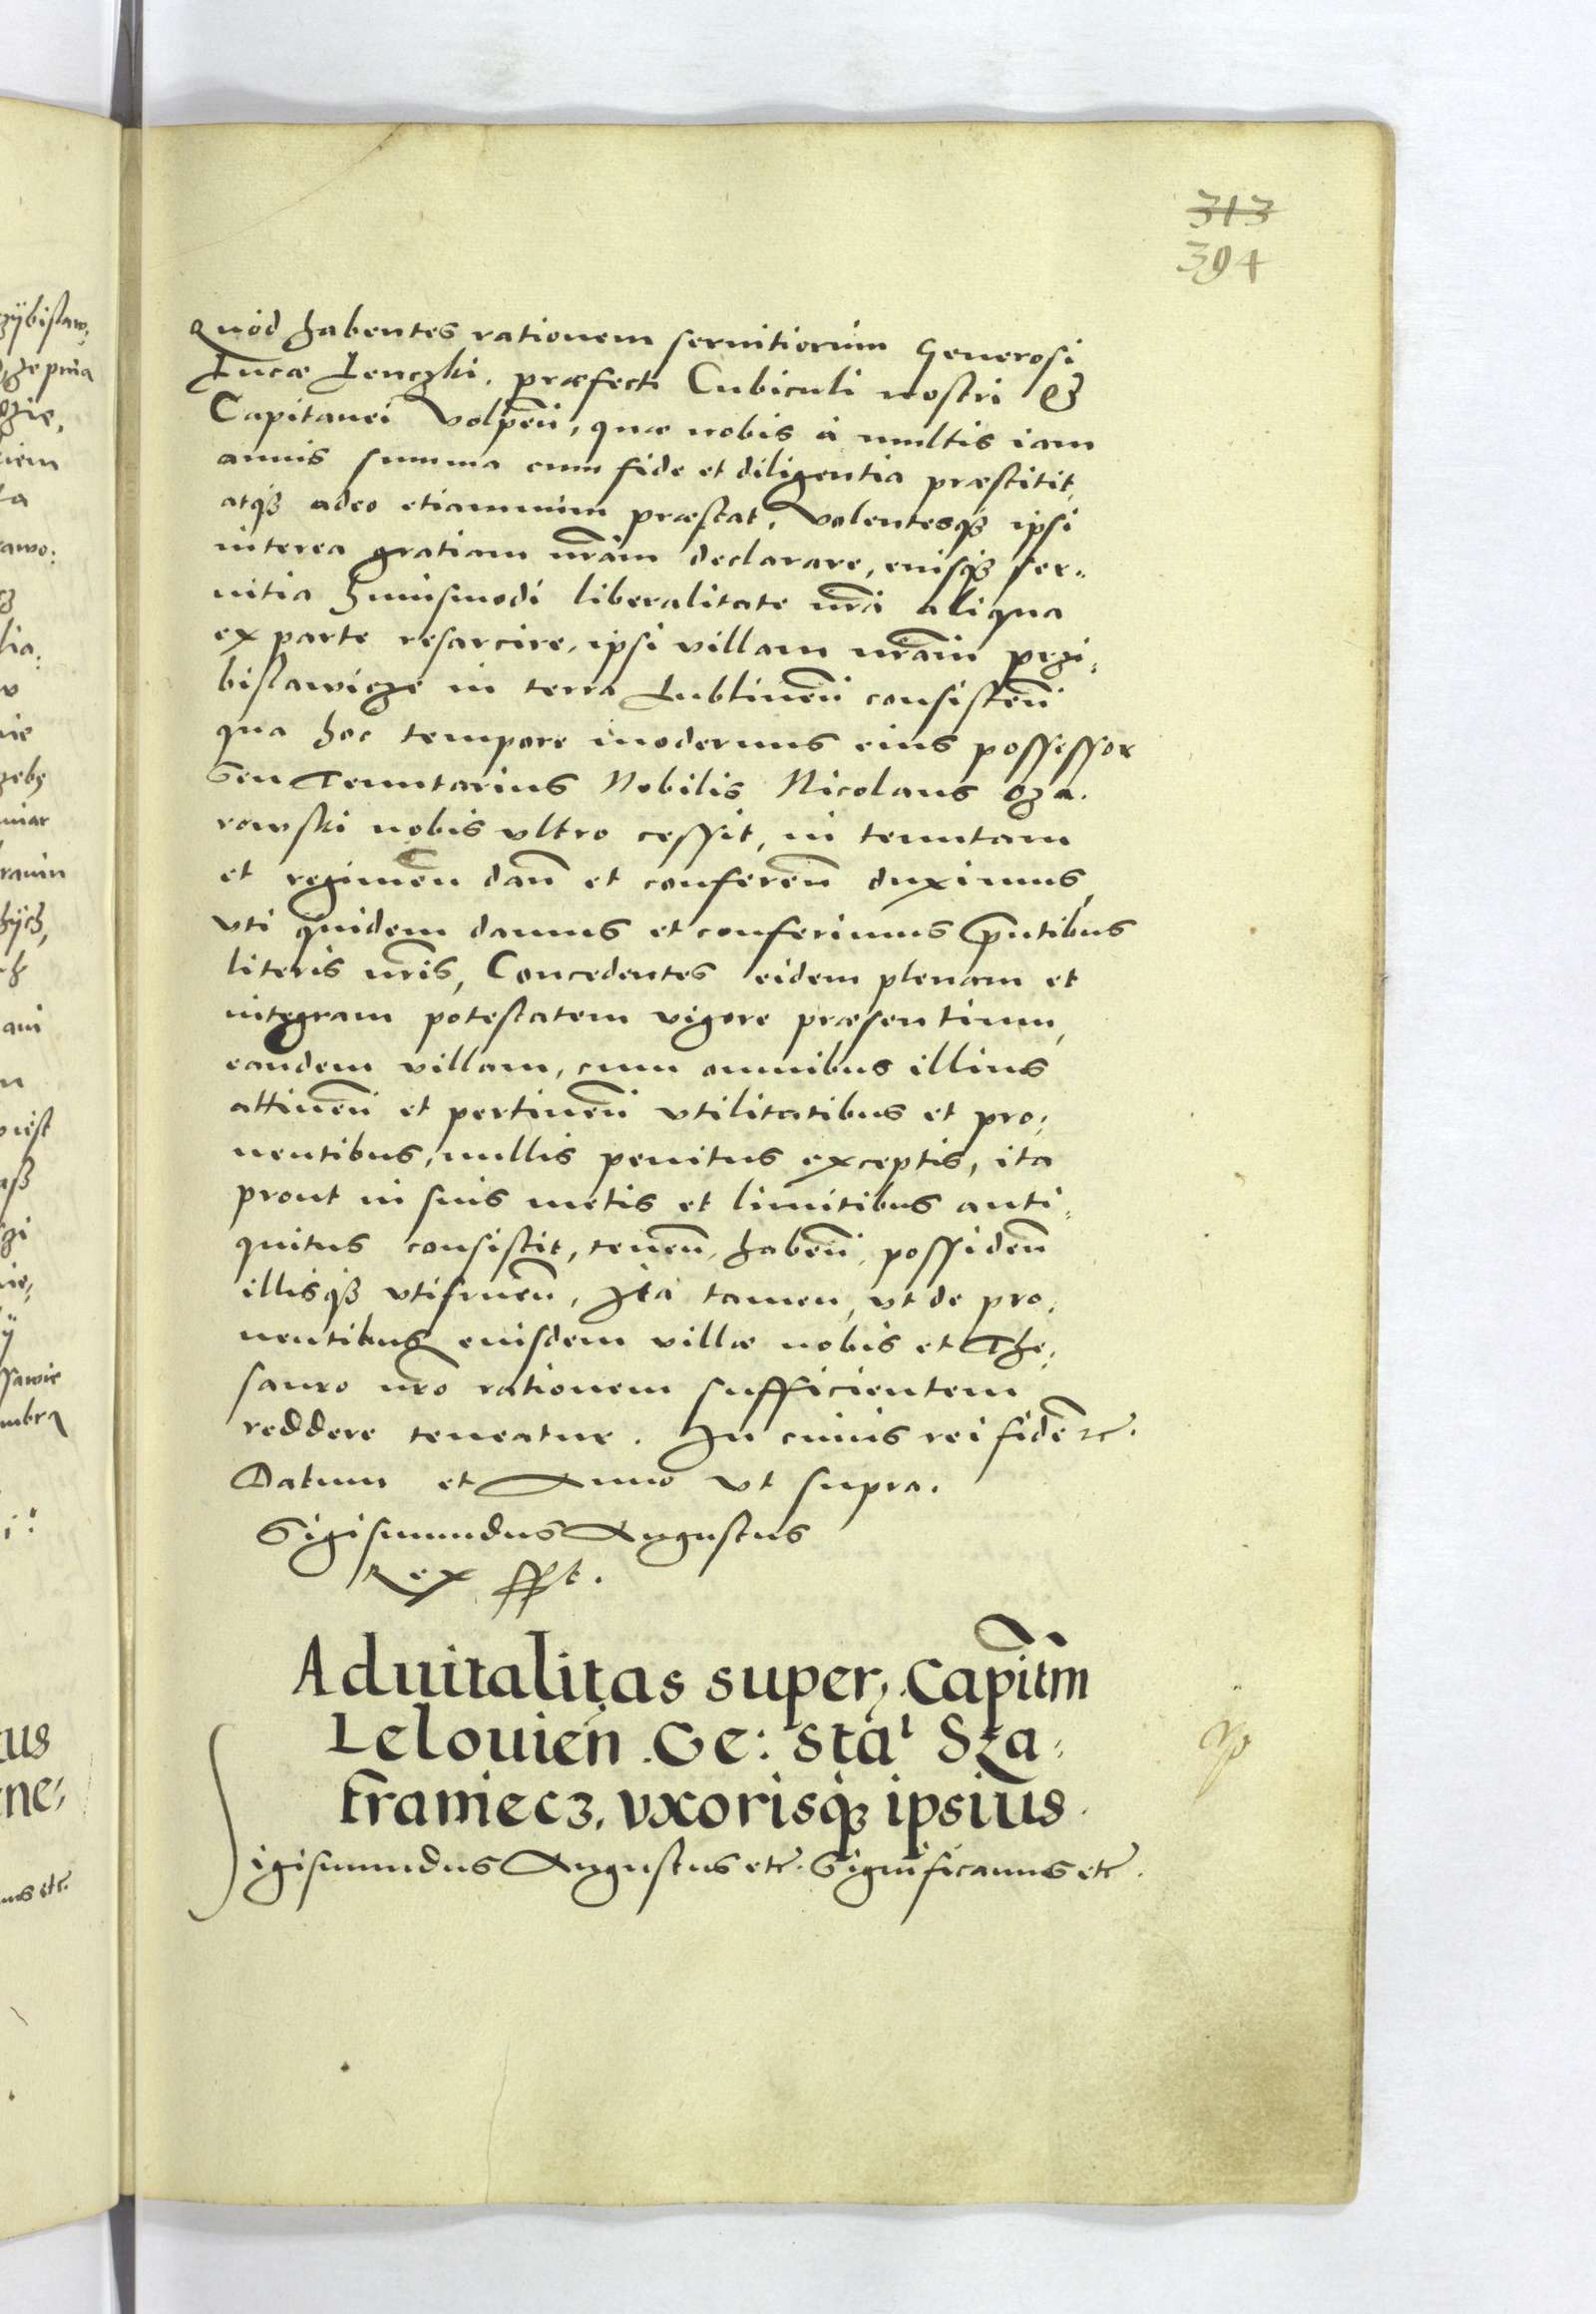 313
394
Quod habentes rationem seruitiorum Generosi
Lucæ Lenczki. præfecti Cubiculi nostri &
Capitanei Volpeñ, quæ nobis à multis iam
annis summa cum fide et diligentia præstitit,
atqꝫ adeo etiamnum præstat, volentesqꝫ ipsi
interea gratiam nr̃am declarare, eiusqꝫ ser„
uitia huiusmodi liberalitate nr̃a aliqua
ex parte resarcire, ipsi villam nr̃am przi„
bislawicze in terra Lublineñ consisteñ
qua hoc tempore modernus eius possessor
Seu Tenutarius Nobilis Nicolaus Oza.
rowski nobis vltro cessit, in tenutam
et regimen dañ et confereñ duximus,
vti quidem damus et conferimus p̃ntibus
literis nr̃is, Concedentes eidem plenam et
integram potestatem vigore præsentium,
eandem villam, cum omnibus illius
attineñ et pertineñ vtilitatibus et pro„
uentibus, nullis penitus exceptis, ita
prout in suis metis et limitibus anti„
quitus consistit, teneñ, habeñ, possideñ
illisqꝫ vtifrueñ, Ita tamen, vt de pro„
uentibus eiusdem villæ nobis et The„
sauro nr̃o rationem sufficientem
reddere teneatur. In cuius rei fidẽ etc.
Datum et Anno vt supra.
Sigismundus Augustus
Rex sspt.
Aduitalitas super, Capit̃m
Lelouieñ. Ge: Sta: Sza„
franiecz. vxorisqꝫ ipsius.
Sigismundus Augustus etc. Significamus etc.